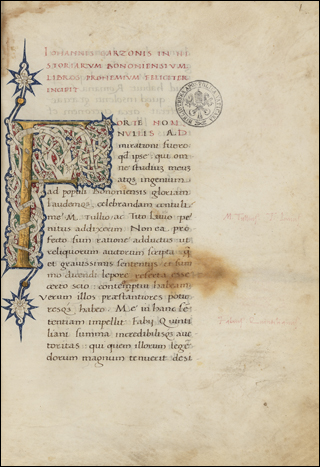 IOHANNES GARZONIS IN HI
STORIARVM BONONIENSIVM
LIBROS PROHEMIVM FELICITER
INCIPIT
FORTE NON
NVLLIS AD
mirationi fuero
qd ipse qui om
ne studiũ meũ
atq3 ingenium
ad populi Bononiensis gloriam
laudemq3 celebrandam contuli
me M. Tullio ac Tito Livio pe
nitus addixerim Non ea pro
fecto sum ratione adductus ut
reliquorum autorum scripta q
et gravissimis sententiis et sum
mo dicendi lepore referta esse
certo scio contemptui habeam
verum illos praestantiores potio
resq3 habeo Me in hanc sẽ
tentiam impellit Fabii Quinti
liani summa incredibilisq3 auc
toritas qui quem illorum lege
dorum magnum tenuerit desi